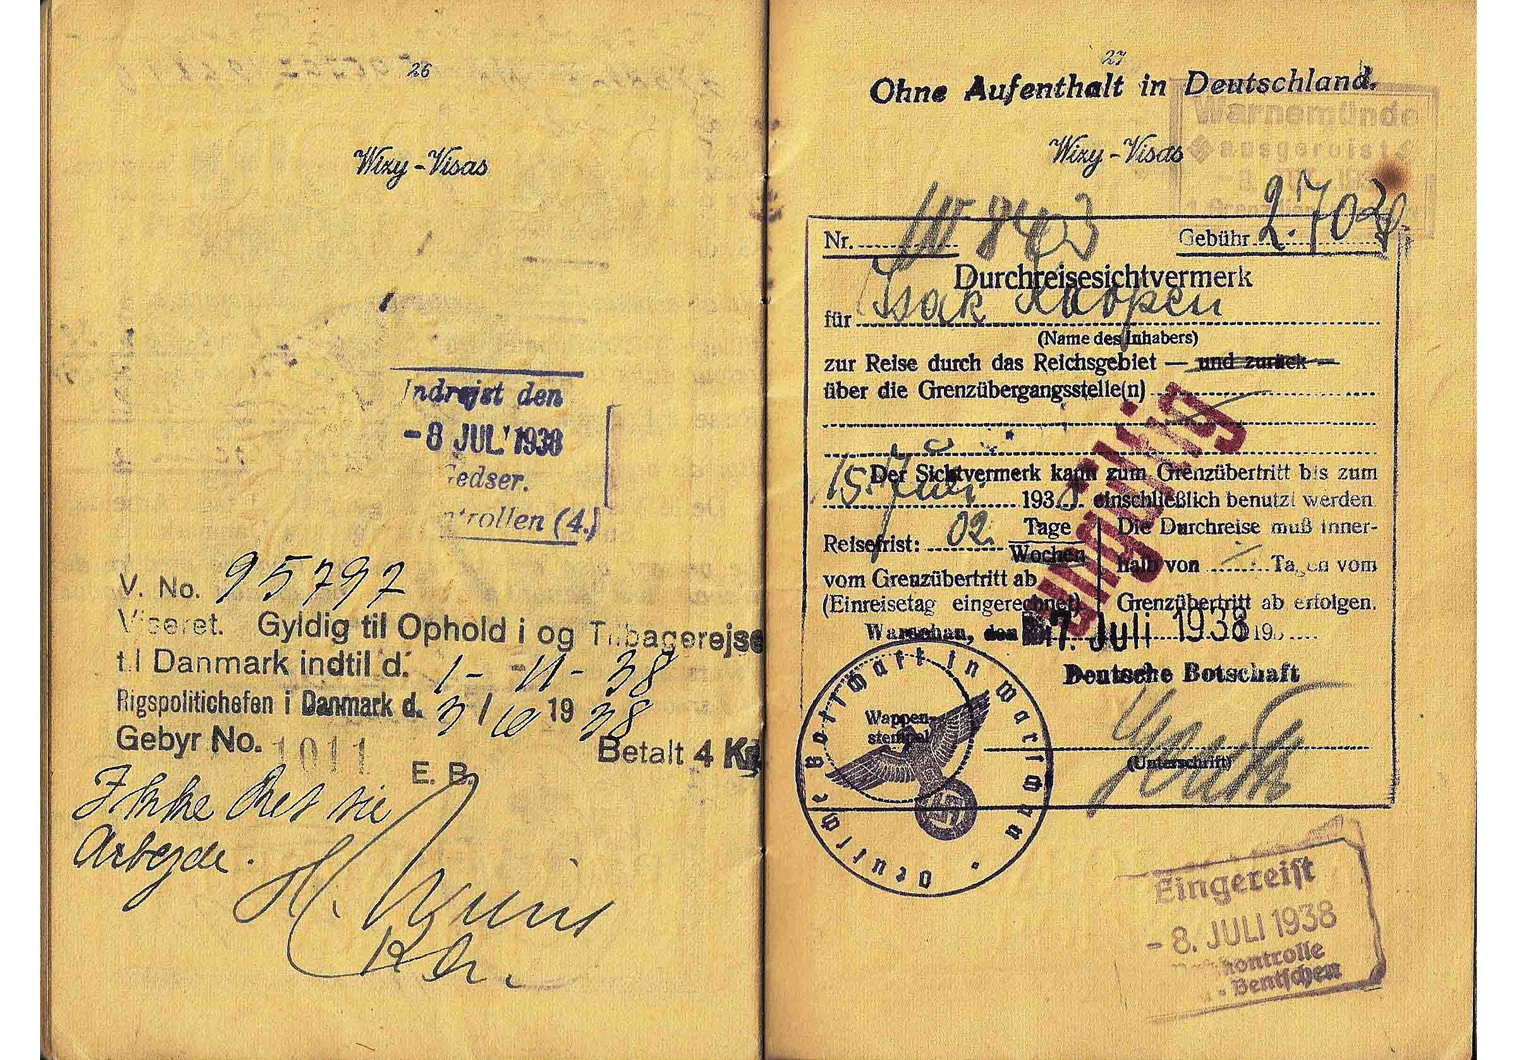 26
Wizy - Visas
Indrejst den
- 8 JUL' 1938
Gedser.
ntrollen (4.)
V. No. 95797
Viseret. Gyldig til Ophold i og Tilbagerejse
til Danmark indtil d. 1 - 11 - 38
Rigspolitichefen i Danmark d. 3/6 1938
Gebyr No. 1011 Betalt 4 Kr.
E. B.
Ikke Ret til
Arbejde.
27
Ohne Aufenthalt in Deutschland.
Warnemünde
ausgereist
Wizy - Visas
Nr. 843
Gebühr 2.70
Durchreisesichtvermerk
für Isak
(Name des Inhabers)
zur Reise durch das Reichsgebiet — und zurück —
über die Grenzübergangsstelle(n)
ungültig
Der Sichtvermerk kann zum Grenzübertritt bis zum
15. Juli 1938 einschließlich benutzt werden.
Reisefrist: 02. Tage
Wochen
vom Grenzübertritt ab
(Einreisetag eingerechnet)
Die Durchreise muß inner-
halb von Tagen vom
Grenzübertritt ab erfolgen.
Warschau, den 7. Juli 1938 19
Deutsche Botschaft
Wappen-
stempel
Deutsche Botschaft in Warschau
(Unterschrift)
Eingereist
- 8. JULI 1938
Paßkontrolle
Bentschen